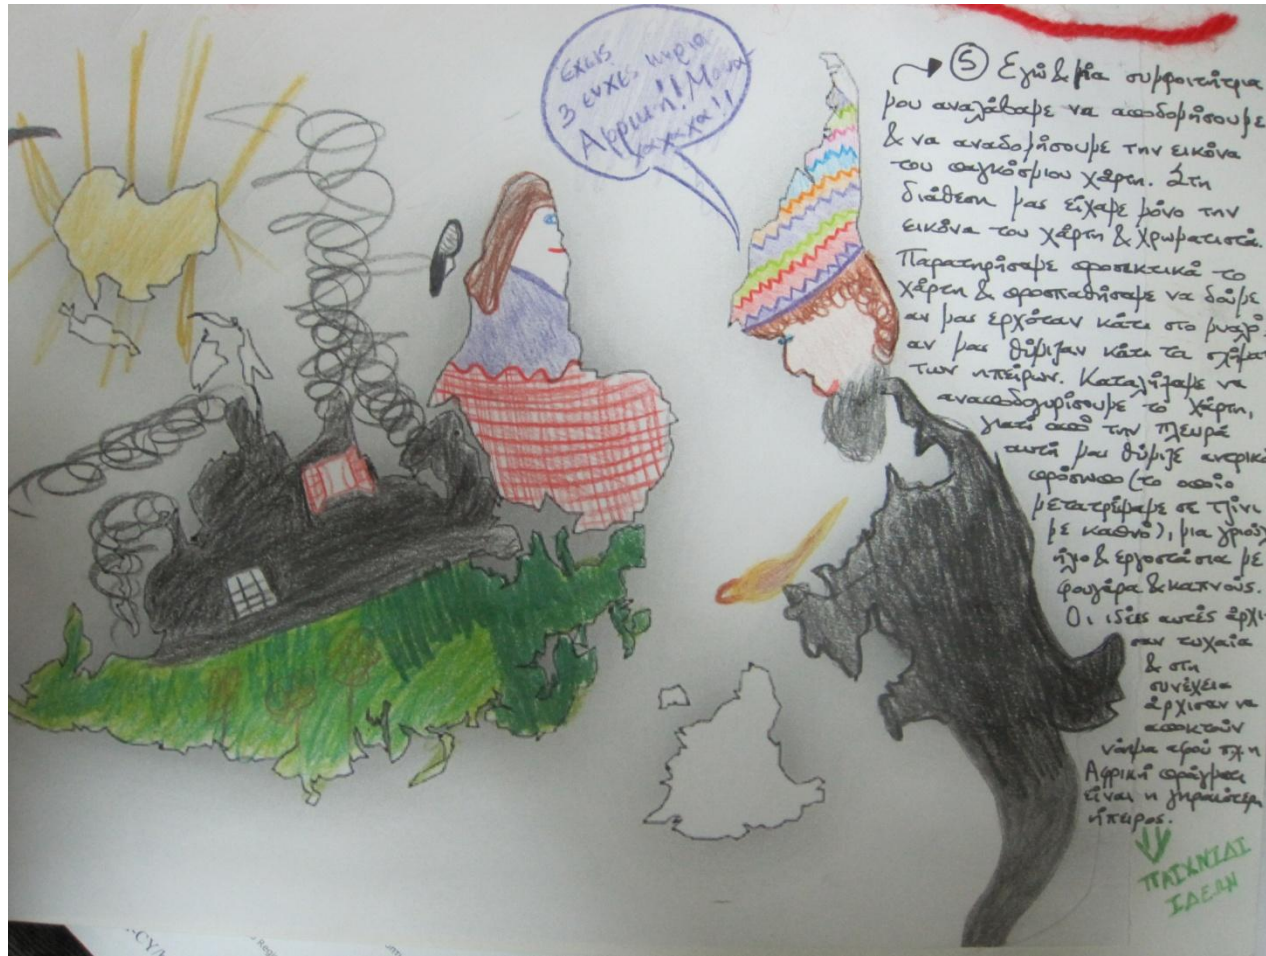 Έχεις
3 ευχές κυρία
Αφρική!! Μουα
χαχαχα!!
→ ⑤ Εγώ & μία συμφοιτήτρια
μου αναλάβαμε να αποδομήσουμε
& να αναδομήσουμε την εικόνα
του παγκόσμιου χάρτη. Στη
διάθεση μας είχαμε μόνο την
εικόνα του χάρτη & χρωματιστά.
Παρατηρήσαμε προσεκτικά το
χάρτη & προσπαθήσαμε να δούμε
αν μας ερχόταν κάτι στο μυαλό,
αν μας θύμιζαν κάτι τα σχήμα
των ηπείρων. Καταλήξαμε να
αναποδογυρίσουμε το χάρτη,
γιατί από την πλευρά
αυτή μας θύμιζε αντρικό
πρόσωπο (το οποίο
μετατρέψαμε σε τζίνι
με καπνό), μια γριούλ
ήλιο & εργοστάσια με
φουγάρα & καπνούς.
Οι ιδέες αυτές άρχι-
σαν τυχαία
& στη
συνέχεια
άρχισαν να
αποκτούν
νόημα αφού η
Αφρική πράγματι
είναι η γηραιότερη
ήπειρος.
ΠΑΙΧΝΙΔΙ
ΙΔΕΩΝ
-CY/